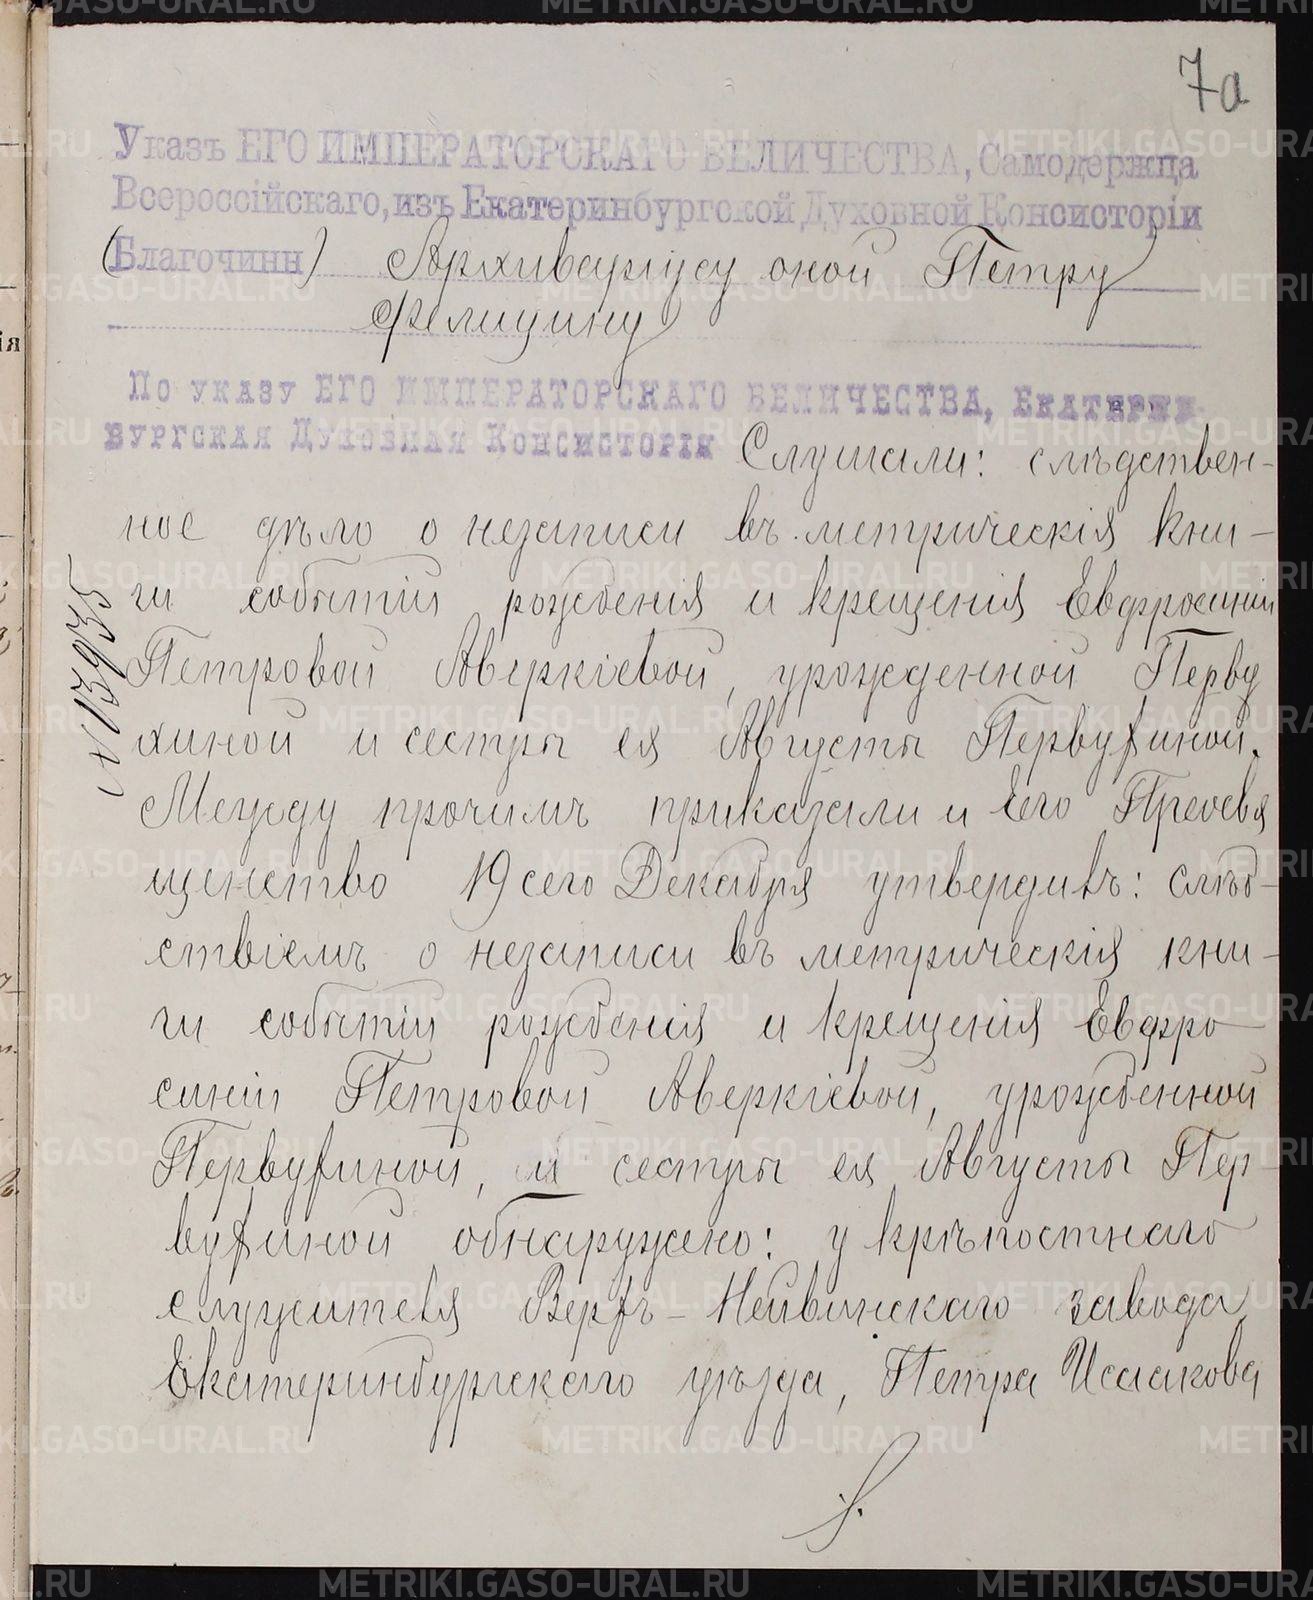 7а
Указъ ЕГО ИМПЕРАТОРСКАГО ВЕЛИЧЕСТВА, Самодержца
Всероссійскаго, изъ Екатеринбургской Духовной Консисторіи
(Благочинн) Архиваріусу оной Петру
Фелицину
По указу ЕГО ИМПЕРАТОРСКАГО ВЕЛИЧЕСТВА, Екатерин-
бургская Духовная Консисторія Слушали: слѣдствен-
ное дѣло о незаписи въ метрическія кни-
ги событій рожденія и крещенія Евфросиніи
Петровой Аверкіевой, урожденной Перву
хиной и сестры ея Августы Первухиной.
Между прочимъ приказали и Его Преосвя
щенство 19 сего Декабря утвердилъ: слѣд-
ствіемъ о незаписи въ метрическія кни-
ги событій рожденія и крещенія Евфро
синіи Петровой Аверкіевой, урожденной
Первухиной, и сестры ея Августы Пер-
вухиной обнаружено: у крѣпостнаго
служителя Верхъ-Нейвинскаго завода,
Екатеринбургскаго уѣзда, Петра Исаакова
№ 13935
METRIKI.GASO-URAL.RU